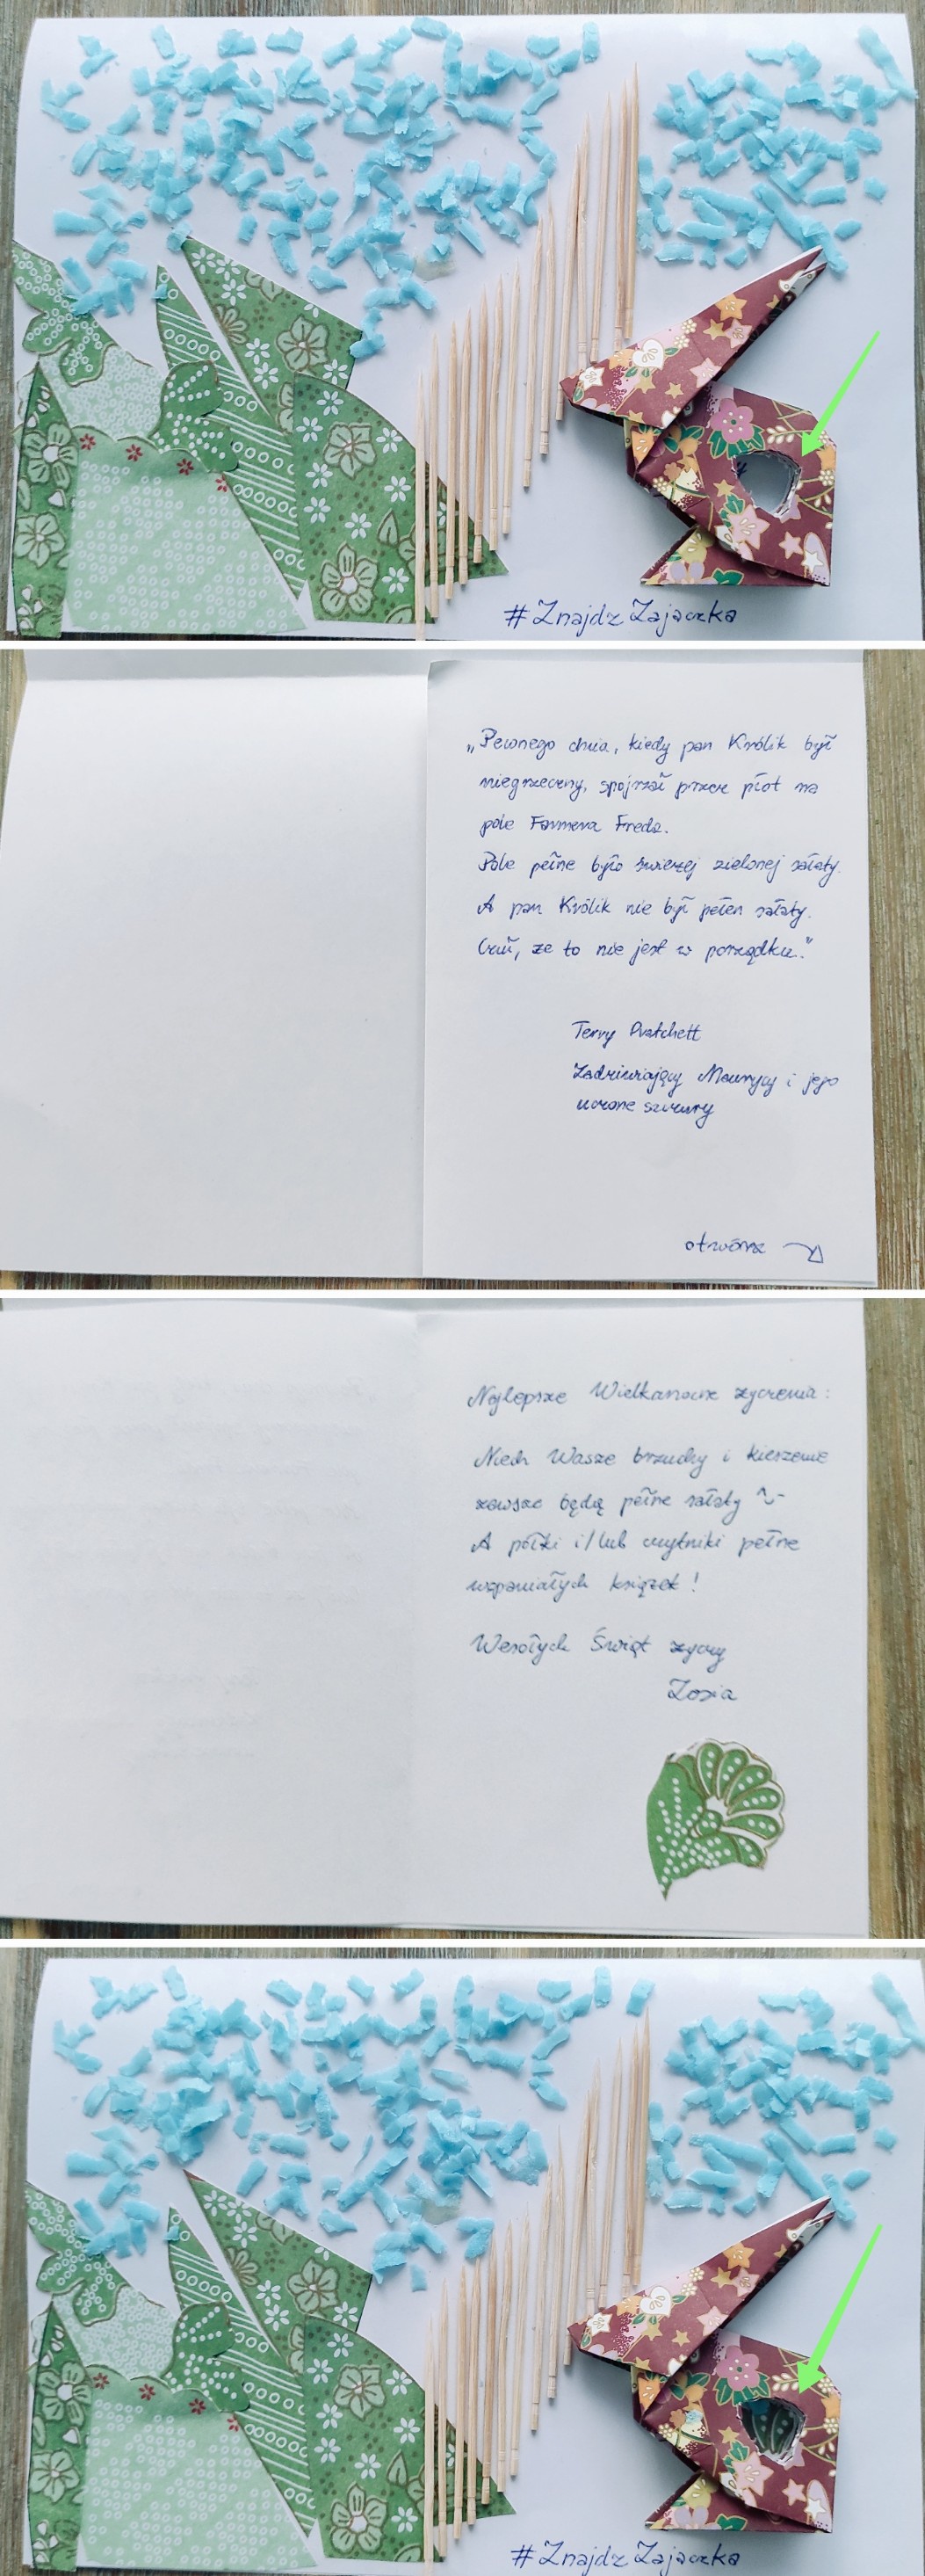 #ZnajdzZajaczka
„Pewnego dnia, kiedy pan Królik był
niegrzeczny, spojrzał przez płot na
pole Farmera Freda.
Pole pełne było świeżej zielonej sałaty.
A pan Królik nie był pełen sałaty.
Czuł, że to nie jest w porządku."
Terry Pratchett
Zadziwiający Maurycy i jego
uczone szczury
otwórz
Najlepsze Wielkanocne życzenia:
Niech Wasze brzuchy i kieszenie
zawsze będą pełne sałaty ~
A półki i/lub czytniki pełne
wspaniałych książek!
Wesołych Świąt życzy
Zosia
#ZnajdzZajaczka